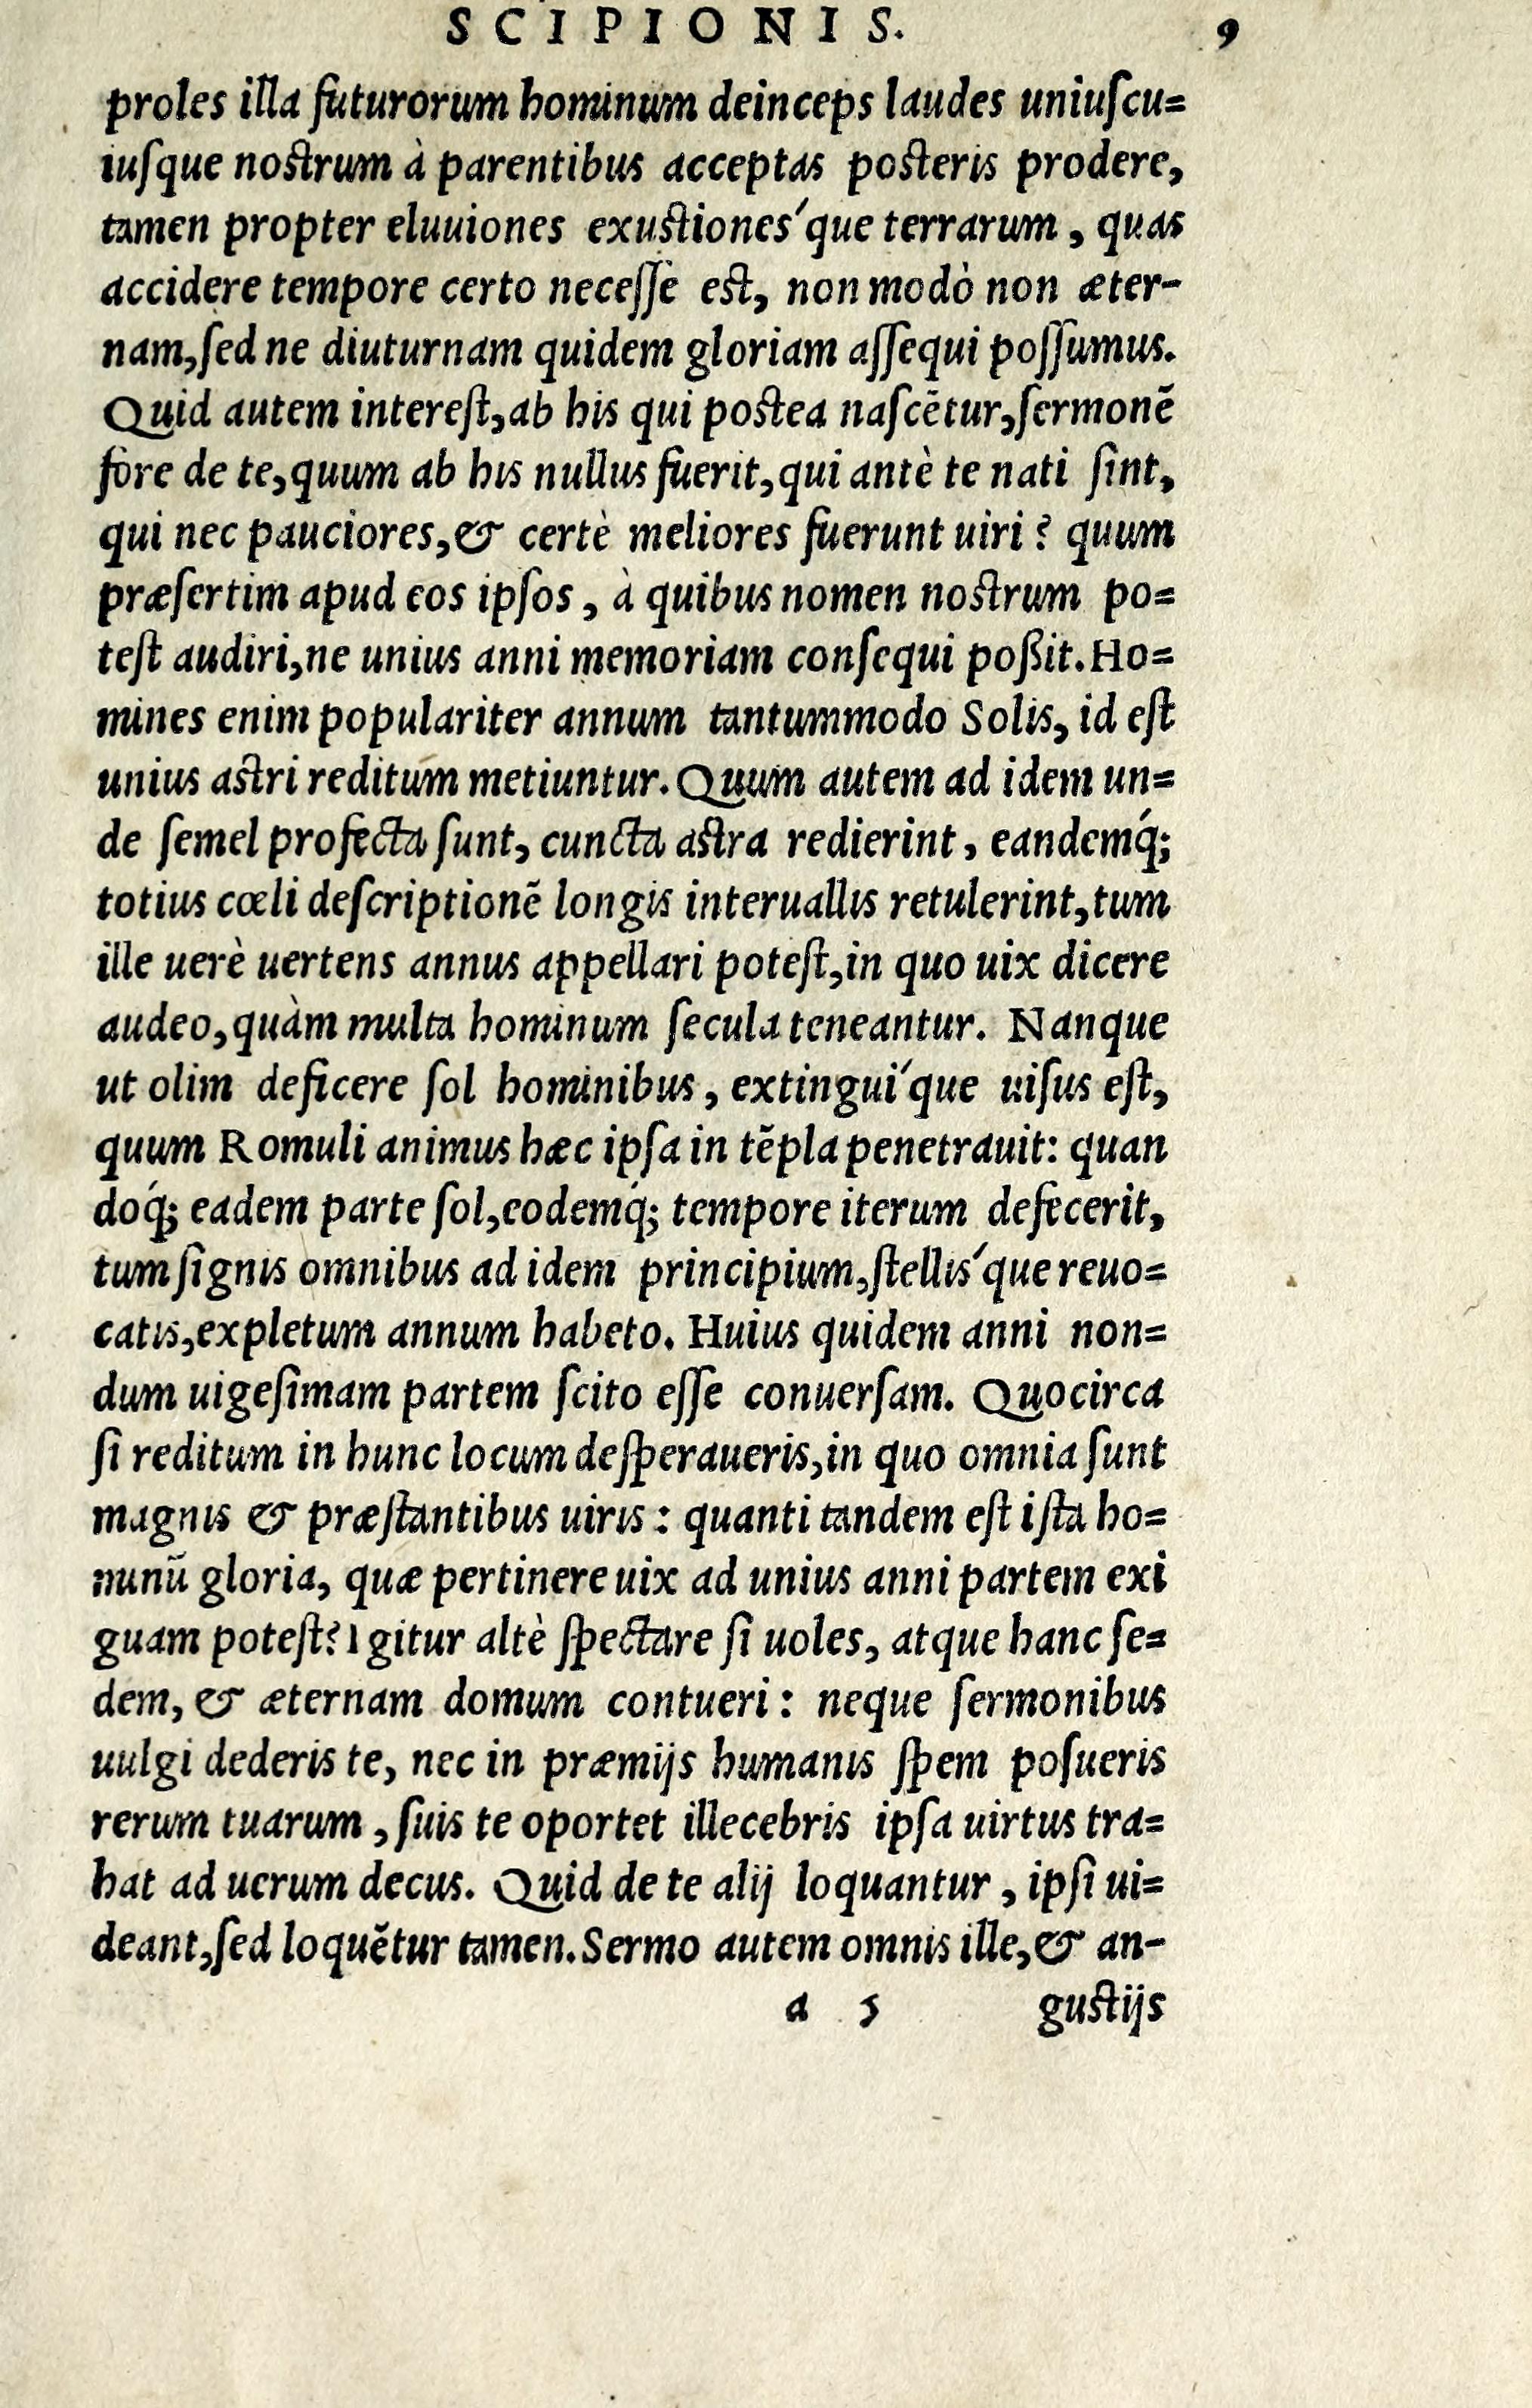 SCIPIONIS. 9
proles illa futurorum hominum deinceps laudes uniuſcu=
iuſque nostrum à parentibus acceptas posteris prodere,
tamen propter eluuiones exustiones´que terrarum, quas
accidere tempore certo neceſſe est, non modò non æter-
nam, ſed ne diuturnam quidem gloriam aſſequi poſſumus.
Quid autem intereſt, ab his qui postea naſcētur, ſermonē
fore de te, quum ab his nullus fuerit, qui antè te nati ſint,
qui nec pauciores, & certè meliores fuerunt uiri? quum
præſertim apud eos ipſos, à quibus nomen nostrum po=
teſt audiri, ne unius anni memoriam conſequi poßit. Ho=
mines enim populariter annum tantummodo Solis, id eſt
unius astri reditum metiuntur. Quum autem ad idem un=
de ſemel profecta ſunt, cuncta astra redierint, eandemq́;
totius cœli deſcriptionē longis interuallis retulerint, tum
ille uerè uertens annus appellari poteſt, in quo uix dicere
audeo, quàm multa hominum ſecula teneantur. Nanque
ut olim deficere ſol hominibus, extingui´que uiſus eſt,
quum Romuli animus hæc ipſa in tēpla penetrauit: quan
doq́; eadem parte ſol, eodemq́; tempore iterum defecerit,
tum ſignis omnibus ad idem principium, ſtellis´que reuo=
catis, expletum annum habeto. Huius quidem anni non=
dum uigeſimam partem ſcito eſſe conuerſam. Quocirca
ſi reditum in hunc locum deſperaueris, in quo omnia ſunt
magnis & præſtantibus uiris: quanti tandem eſt iſta ho=
minū gloria, quæ pertinere uix ad unius anni partem exi
guam poteſt? Igitur altè ſpectare ſi uoles, atque hanc ſe=
dem, & æternam domum contueri: neque ſermonibus
uulgi dederis te, nec in præmijs humanis ſpem poſueris
rerum tuarum, ſuis te oportet illecebris ipſa uirtus tra=
hat ad uerum decus. Quid de te alij loquantur, ipſi ui=
deant, ſed loquētur tamen. Sermo autem omnis ille, & an-
a 5 gustijs